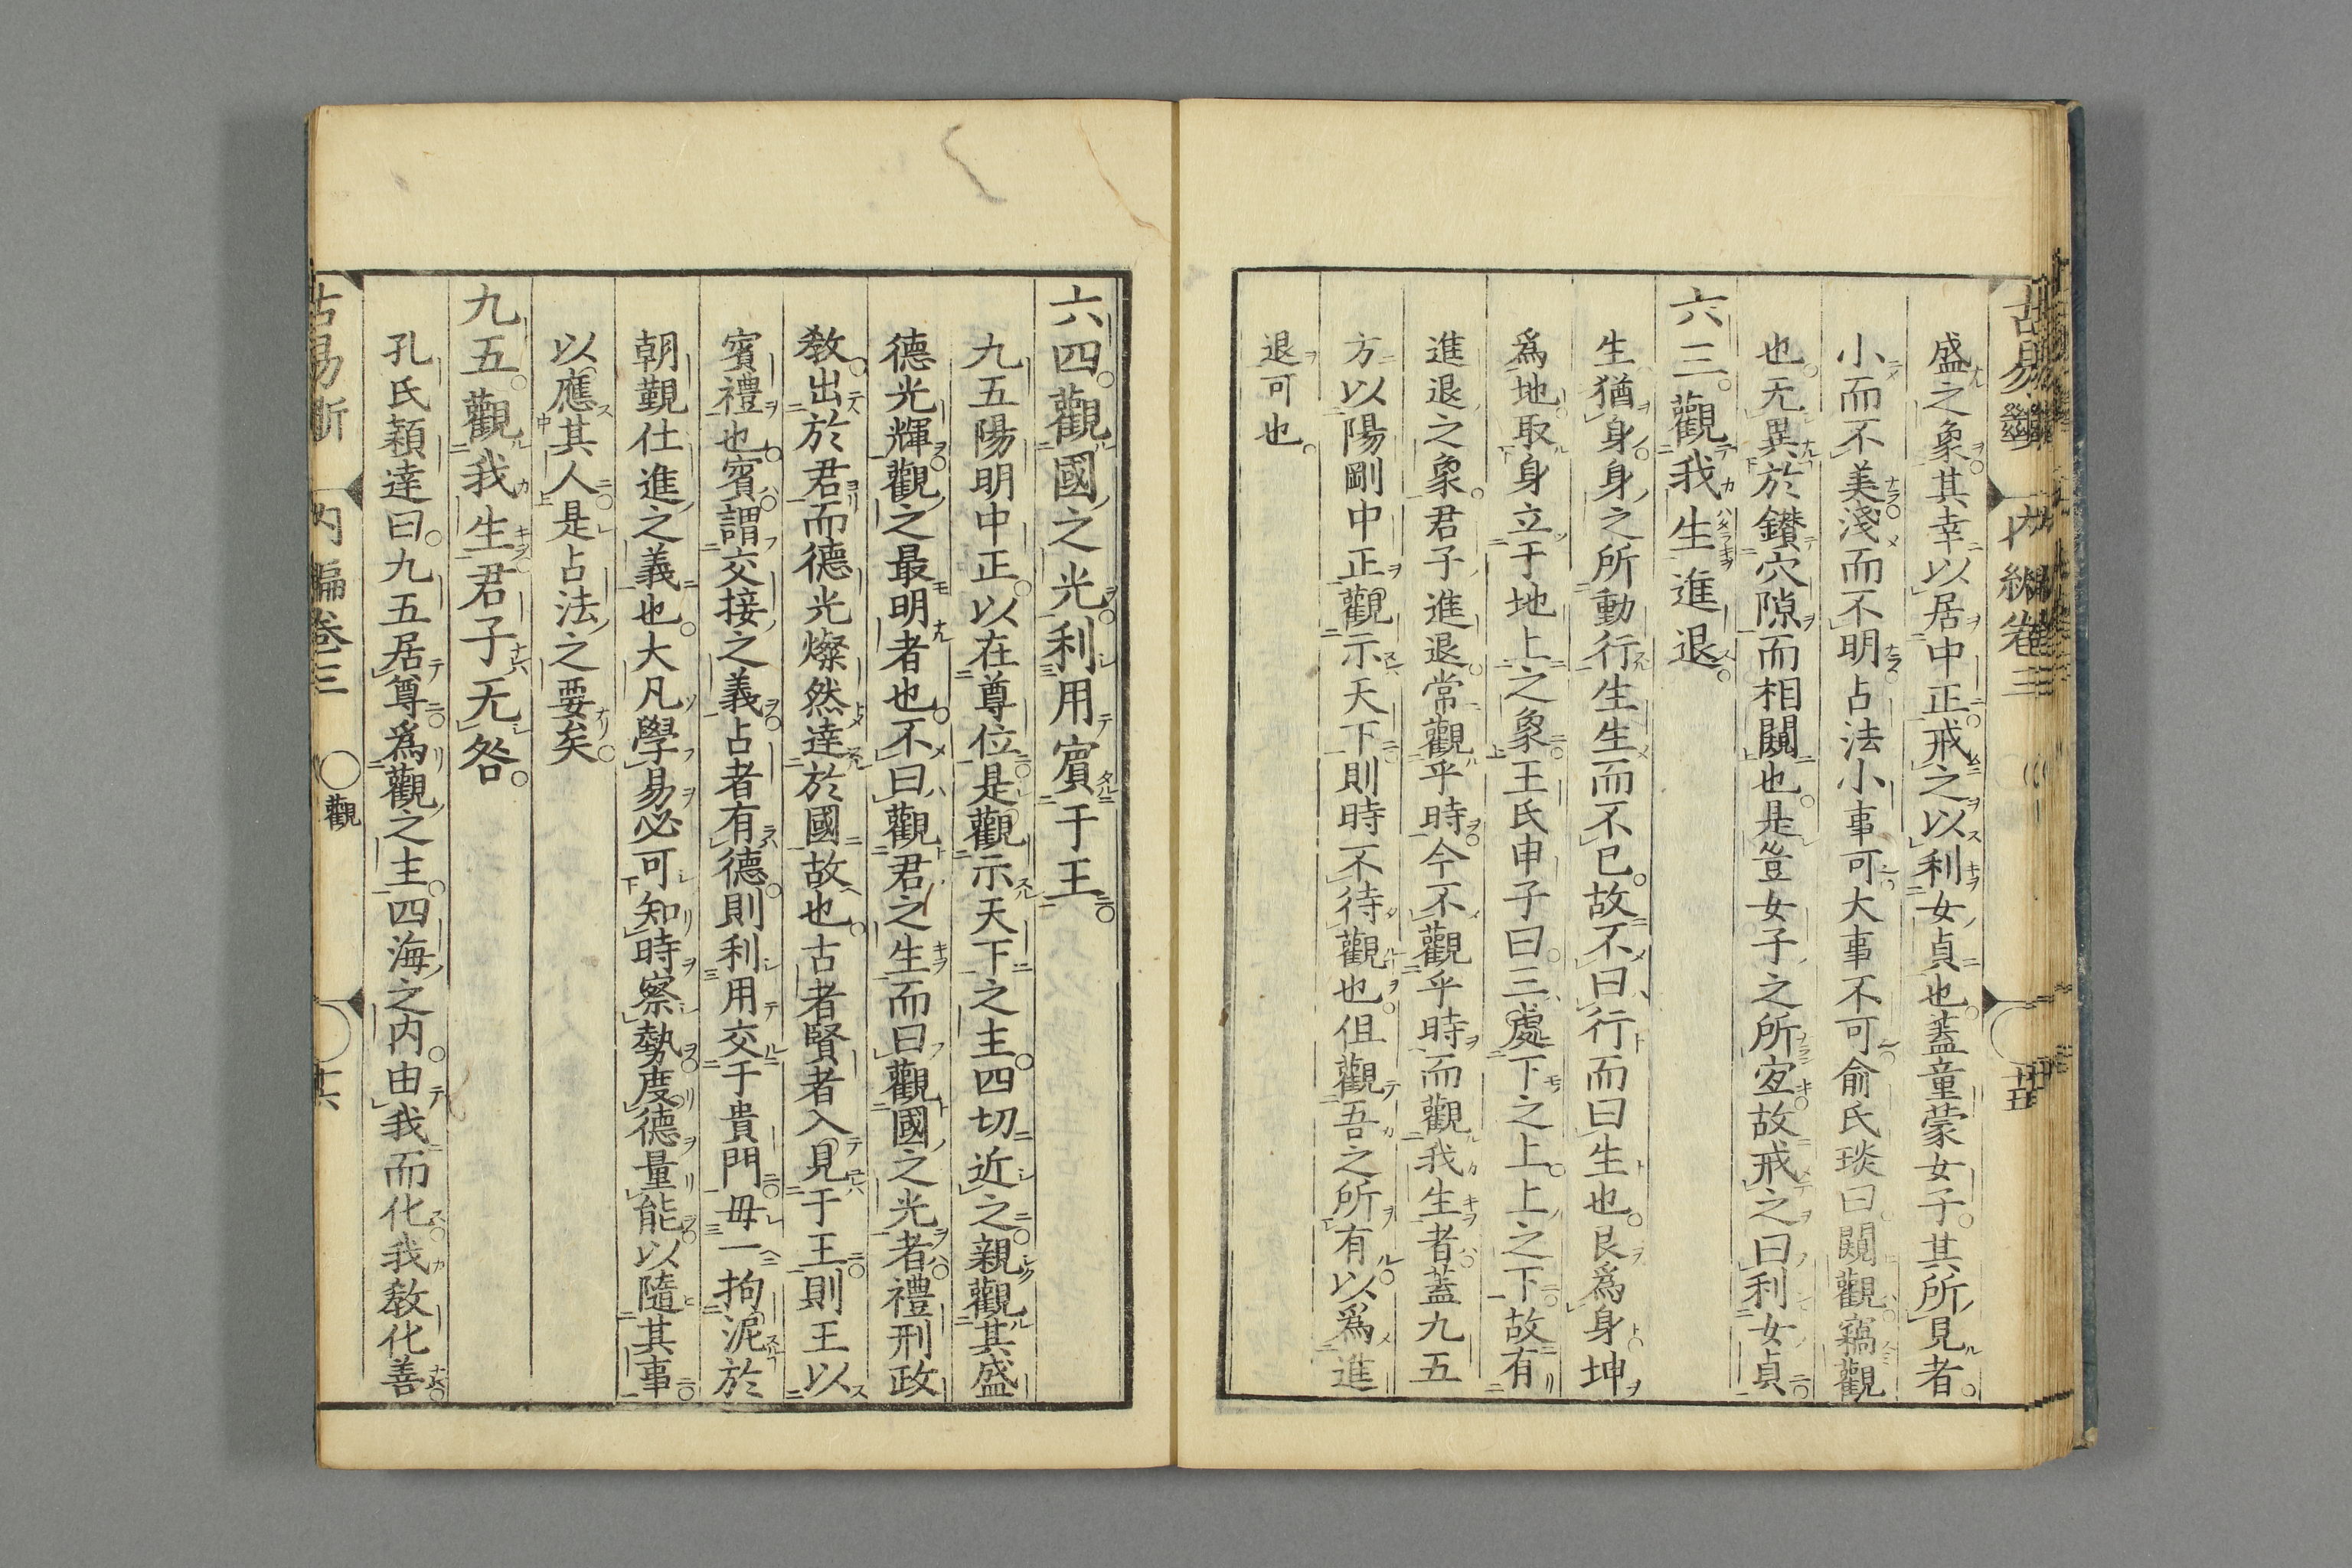 盛之象其幸以居中正戒之以利女貞也蓋童蒙女子其所見者
小而不美淺而不明占法小事可大事不可俞氏琰曰闚觀竊觀
也无異於鑚穴隙而相闚也是豈女子之所宜故戒之曰利女貞
六三觀我生進退
生猶身身之所動行生生而不已故不曰行而曰生也艮爲身坤
爲地取身立于地上之象王氏申子曰三處下之上上之下故有
進退之象君子進退常觀乎時今不觀乎時而觀我生者蓋九五
方以陽剛中正觀示天下則時不待觀也但觀吾之所有以爲進
退可也
六四觀國之光利用賓于王
九五陽明中正以在尊位是觀示天下之主四切近之親觀其盛
德光輝觀之最明者也不曰觀君之生而曰觀國之光者禮刑政
教出於君而德光燦然達於國故也古者賢者入見于王則王以
賓禮也賓謂交接之義占者有德則利用交于貴門毋一拘泥於
朝覲仕進之義也大凡學易必可知時察勢度德量能以隨其事
以應其人是占法之要矣
九五觀我生君子无咎
孔氏穎達曰九五居尊爲觀之主四海之內由我而化我教化善
古易斷 內編卷三 觀 廿六